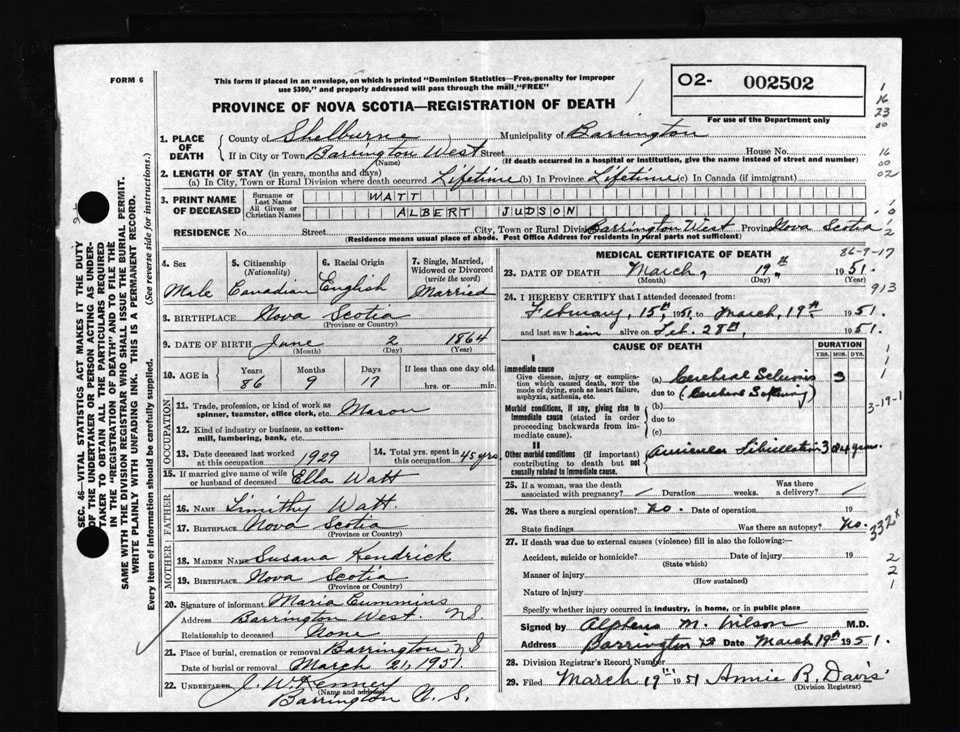 FORM 6
This form if placed in an envelope, on which is printed "Dominion Statistics—Free, penalty for improper
use $300," and properly addressed will pass through the mail "FREE"
O2- 002502
For use of the Department only
PROVINCE OF NOVA SCOTIA—REGISTRATION OF DEATH
1. PLACE OF DEATH
County of Shelburne Municipality of Barrington
If in City or Town Barrington West Street House No.
(Name) (If death occurred in a hospital or institution, give the name instead of street and number)
2. LENGTH OF STAY (in years, months and days)
(a) In City, Town or Rural Division where death occurred Lifetime (b) In Province Lifetime (c) In Canada (if immigrant)
3. PRINT NAME OF DECEASED
Surname or Last Name WATT
All Given or Christian Names ALBERT JUDSON
RESIDENCE No. Street City, Town or Rural Division Barrington West Province Nova Scotia
(Residence means usual place of abode. Post Office Address for residents in rural parts not sufficient)
4. Sex Male
5. Citizenship (Nationality) Canadian
6. Racial Origin English
7. Single, Married, Widowed or Divorced (write the word) Married
8. BIRTHPLACE Nova Scotia
(Province or Country)
9. DATE OF BIRTH June 2 1864
(Month) (Day) (Year)
10. AGE in Years Months Days If less than one day old
86 9 17 hrs. or min.
OCCUPATION
11. Trade, profession, or kind of work as spinner, teamster, office clerk, etc. Mason
12. Kind of industry or business, as cotton-mill, lumbering, bank, etc.
13. Date deceased last worked at this occupation 1929
14. Total yrs. spent in this occupation 45 yrs.
15. If married give name of wife or husband of deceased Ella Watt
FATHER
16. Name Timithy Watt.
17. Birthplace Nova Scotia
(Province or Country)
MOTHER
18. MAIDEN NAME Susana Kendrick
19. BIRTHPLACE Nova Scotia
(Province or Country)
20. Signature of informant Maria Cummins
Address Barrington West. N.S.
Relationship to deceased None
21. Place of burial, cremation or removal Barrington N S
Date of burial or removal March 21, 1951.
22. UNDERTAKER J. W. Kenney
(Name and address)
Barrington N. S.
MEDICAL CERTIFICATE OF DEATH
86-9-17
23. DATE OF DEATH March, 19th 1951.
(Month) (Day) (Year)
913
24. I HEREBY CERTIFY that I attended deceased from
February, 15th, 1951 to March, 19th 1951.
and last saw him alive on Feb. 28th, 1951.
CAUSE OF DEATH DURATION
YRS. MOS. DYS.
I
Immediate cause
Give disease, injury or complication which caused death, NOT the mode of dying, such as heart failure, asphyxia, asthenia, etc.
(a) Cerebral 3
due to
Morbid conditions, if any, giving rise to immediate cause (stated in order proceeding backwards from immediate cause).
(b)
due to
(c)
3-19-1
II
Other morbid conditions (if important) contributing to death but not causally related to immediate cause.
Auricular Fibrillation 3 or 4 years.
25. If a woman, was the death associated with pregnancy? Duration weeks. Was there a delivery?
26. Was there a surgical operation? No. Date of operation 19
State findings Was there an autopsy? No.
332x
27. If death was due to external causes (violence) fill in also the following:—
Accident, suicide or homicide? Date of injury 19
(State which)
Manner of injury
(How sustained)
Nature of injury
Specify whether injury occurred in industry, in home, or in public place
Signed by Alpheus M. Wilson M.D.
Address Barrington Date March 19th 1951.
28. Division Registrar's Record Number
29. Filed March 19th 1951 Annie R. Davis
(Division Registrar)
SEC. 46—VITAL STATISTICS ACT MAKES IT THE DUTY
OF THE UNDERTAKER OR PERSON ACTING AS UNDERTAKER TO OBTAIN ALL THE PARTICULARS REQUIRED
IN THE "REGISTRATION OF DEATH" AND TO FILE THE
SAME WITH THE DIVISION REGISTRAR WHO SHALL ISSUE THE BURIAL PERMIT.
WRITE PLAINLY WITH UNFADING INK. THIS IS A PERMANENT RECORD.
Every item of information should be carefully supplied. (See reverse side for instructions.)